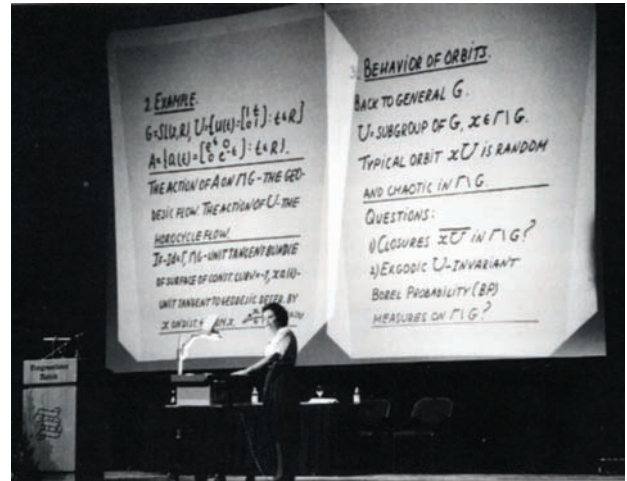 2. EXAMPLE.
G=SL(2,R), U={U(t)=[1 t
0 1]: t∈R}
A={a(t)=[e^t 0
0 e^-t]: t∈R}.
THE ACTION OF A ON Γ\G - THE GEO-
DESIC FLOW. THE ACTION OF U - THE
HOROCYCLE FLOW.
Γ\G - UNIT TANGENT BUNDLE
OF SURFACE OF CONST. CURV=-1,
UNIT TANGENT TO GEODESIC BY
X ON DIST
3. BEHAVIOR OF ORBITS.
BACK TO GENERAL G.
U-SUBGROUP OF G, x∈Γ\G.
TYPICAL ORBIT xU IS RANDOM
AND CHAOTIC IN Γ\G.
QUESTIONS:
1) CLOSURES x̅U̅ IN Γ\G?
2) ERGODIC U-INVARIANT
BOREL PROBABILITY (BP)
MEASURES ON Γ\G?